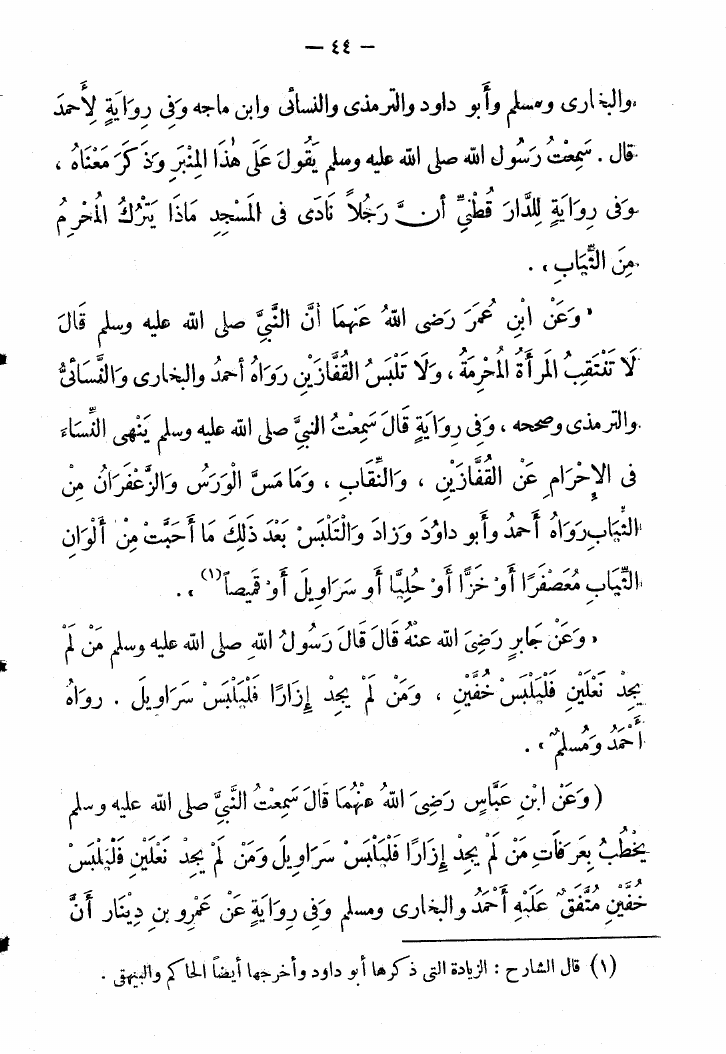 — ٤٤ —
والبخارى ومسلم وأَبو داود والترمذى والنسائى وابن ماجه وَفِى رِوَايَةٍ لِأَحمدَ
قال . سَمِعْتُ رَسُول الله صلى الله عليه وسلم يَقُولَ عَلَى هٰذَا المِنْبَرِ وَذَكَرَ مَعْنَاهُ ،
وَفى رِوَايَةٍ لِلدَّارَ قُطْنِيِّ أنَّ رَجُلاً نَادَى فى المَسْجِدِ مَاذَا يَتْرُكُ المُحْرِمُ
مِنَ الثِّيَابِ ، .
« وَعَنْ ابْنِ عُمَرَ رَضى اللهُ عَنْهُمَا أنَّ النَّبِيَّ صلى الله عليه وسلم قَالَ
لَا تَنْتَقِبُ المَرأَةُ المُحْرِمَةُ ، وَلَا تَلْبَسُ القُفَّازَيْنِ رَوَاهُ أحمدُ والبخارى وَالنَّسَائىُّ
والترمذى وصححه ، وَفى رِوَايَةٍ قَالَ سَمِعْتُ النبيَّ صلى الله عليه وسلم يَنْهى النِّسَاءَ
فى الإِحْرَامِ عَنْ القُفَّازَيْنِ ، وَالنِّقَابِ ، وَمَا مَسَّ الْوَرَسُ وَالزَّعْفَرَانُ مِنْ
الثِّيَابِ رَوَاهُ أَحمدُ وأَبو داوُدَ وَزادَ وَالْتَلْبَسْ بَعْدَ ذٰلِكَ مَا أَحَبَّتْ مِنْ أَلْوَانِ
الثِّيَابِ مُعَصْفَرًا أَوْ خَزًّا أَوْ حُلِيًّا أَو سَرَاوِيلَ أَوْ قَمِيصاً (١) ، .
« وَعَنْ جَابِرٍ رَضِىَ الله عَنْهُ قَالَ قَالَ رَسُولُ اللهِ صلى الله عليه وسلم مَنْ لَمْ
يَجِدْ نَعْلَينِ فَلْيَلْبَسْ خُفَّيْنِ ، وَمَنْ لَمْ يَجِدْ إِزَارًا فَلْيَلْبَسْ سَرَاوِيلَ . رواهُ
أَحْمَدُ وَمُسلمٌ ، .
(وَعَنْ ابْنِ عَبَّاسٍ رَضِىَ اللهُ عنْهُمَا قَالَ سَمِعْتُ النَّبِيَّ صلى الله عليه وسلم
يَخْطُبُ بِعَرَفَاتٍ مَنْ لَمْ يَجِدْ إِزَارًا فَلْيَلْبَسْ سَرَاوِيلَ وَمَنْ لَمْ يَجِدْ نَعْلَينِ فَلْيَلْبَسْ
خُفَّيْنِ مُتَّفَقٌ عَلَيْهِ أَحْمَدُ والبخارى ومسلم وَفى رِوَايَةٍ عَنْ عَمْرِو بنِ دِينَارِ أَنَّ
(١) قال الشارح : الزيادة التى ذكرها أبو داود وأخرجها أيضاً الحاكم والبيهقى .